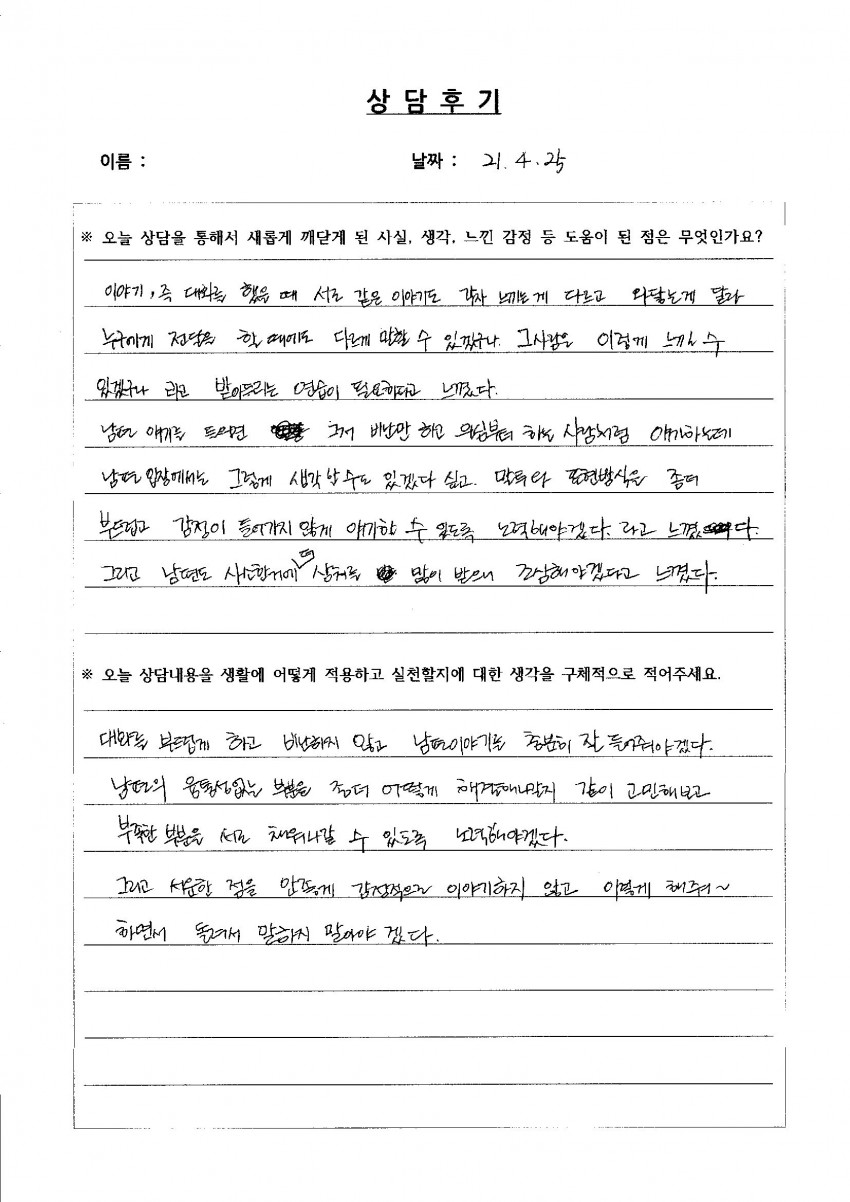 상 담 후 기
이름 : 날짜 : 21. 4. 25
※ 오늘 상담을 통해서 새롭게 깨닫게 된 사실, 생각, 느낀 감정 등 도움이 된 점은 무엇인가요?
이야기, 즉 대화를 했을 때 서로 같은 이야기도 각자 느끼는게 다르고 와닿는게 달라
누구에게 전달을 할 때에도 다르게 말할 수 있겠구나. 그사람은 이렇게 느낄 수
있겠구나 라고 받아드리는 연습이 필요하다고 느꼈다.
남편 얘기를 들으면 그저 비난만 하고 의심부터 하는 사람처럼 얘기하는데
남편 입장에서는 그렇게 생각 할 수도 있겠다 싶고. 말투와 표현방식을 좀더
부드럽고 감정이 들어가지 않게 얘기할 수 있도록 노력해야겠다. 라고 느꼈다.
그리고 남편도 사소한거에 더 상처를 많이 받으니 조심해야겠다고 느꼈다.
※ 오늘 상담내용을 생활에 어떻게 적용하고 실천할지에 대한 생각을 구체적으로 적어주세요.
대화를 부드럽게 하고 비난하지 않고 남편이야기를 충분히 잘 들어줘야겠다.
남편의 융통성없는 부분을 좀더 어떻게 해결해나갈지 같이 고민해보고
부족한 부분을 서로 채워나갈 수 있도록 노력해야겠다.
그리고 서운한 점을 안좋게 감정적으로 이야기하지 않고 이렇게 해줘~
하면서 돌려서 말하지 말아야 겠다.